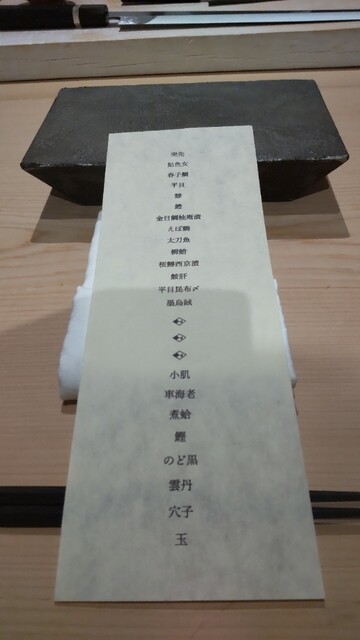 突先
鮎魚女
春子鯛
平貝
金目鯛柚庵漬
えぼ鯛
太刀魚
桜鱒西京漬
鮟肝
平目昆布〆
墨烏賊
小肌
車海老
煮蛤
鰹
のど黒
雲丹
穴子
玉